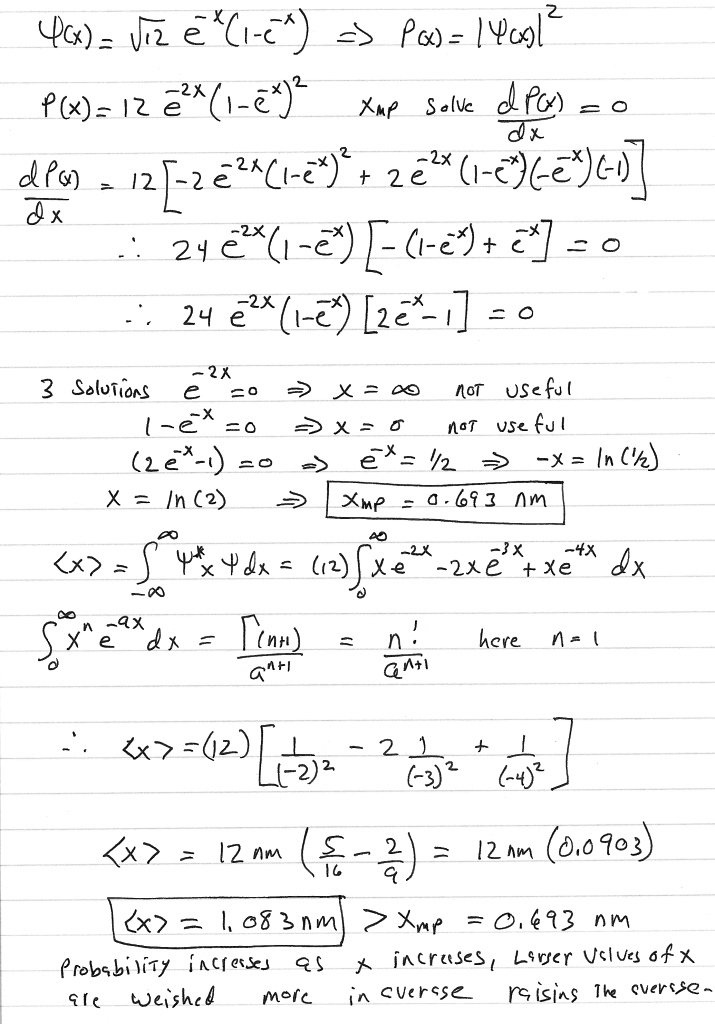 Ψ(x) = √12 e^-x (1-e^-x) => P(x) = |Ψ(x)|^2
P(x) = 12 e^-2x (1-e^-x)^2 Xmp solve dP(x)/dx = 0
dP(x)/dx = 12[-2 e^-2x (1-e^-x)^2 + 2 e^-2x (1-e^-x)(-e^-x)(-1)]
∴ 24 e^-2x (1-e^-x) [-(1-e^-x) + e^-x] = 0
∴ 24 e^-2x (1-e^-x) [2e^-x - 1] = 0
3 Solutions e^-2x = 0 => x = ∞ not useful
1-e^-x = 0 => x = 0 not useful
(2e^-x - 1) = 0 => e^-x = 1/2 => -x = ln(1/2)
X = ln(2) => Xmp = 0.693 nm
<x> = ∫_-∞^∞ Ψ* x Ψ dx = (12) ∫_0^∞ x e^-2x - 2x e^-3x + x e^-4x dx
∫_0^∞ x^n e^-ax dx = Γ(n+1)/a^n+1 = n!/a^n+1 here n=1
∴ <x> = (12) [1/(-2)^2 - 2 1/(-3)^2 + 1/(-4)^2]
<x> = 12 nm (5/16 - 2/9) = 12 nm (0.0903)
<x> = 1.083 nm > Xmp = 0.693 nm
Probability increases as x increases, Larger values of x
are weighed more in average raising the average.